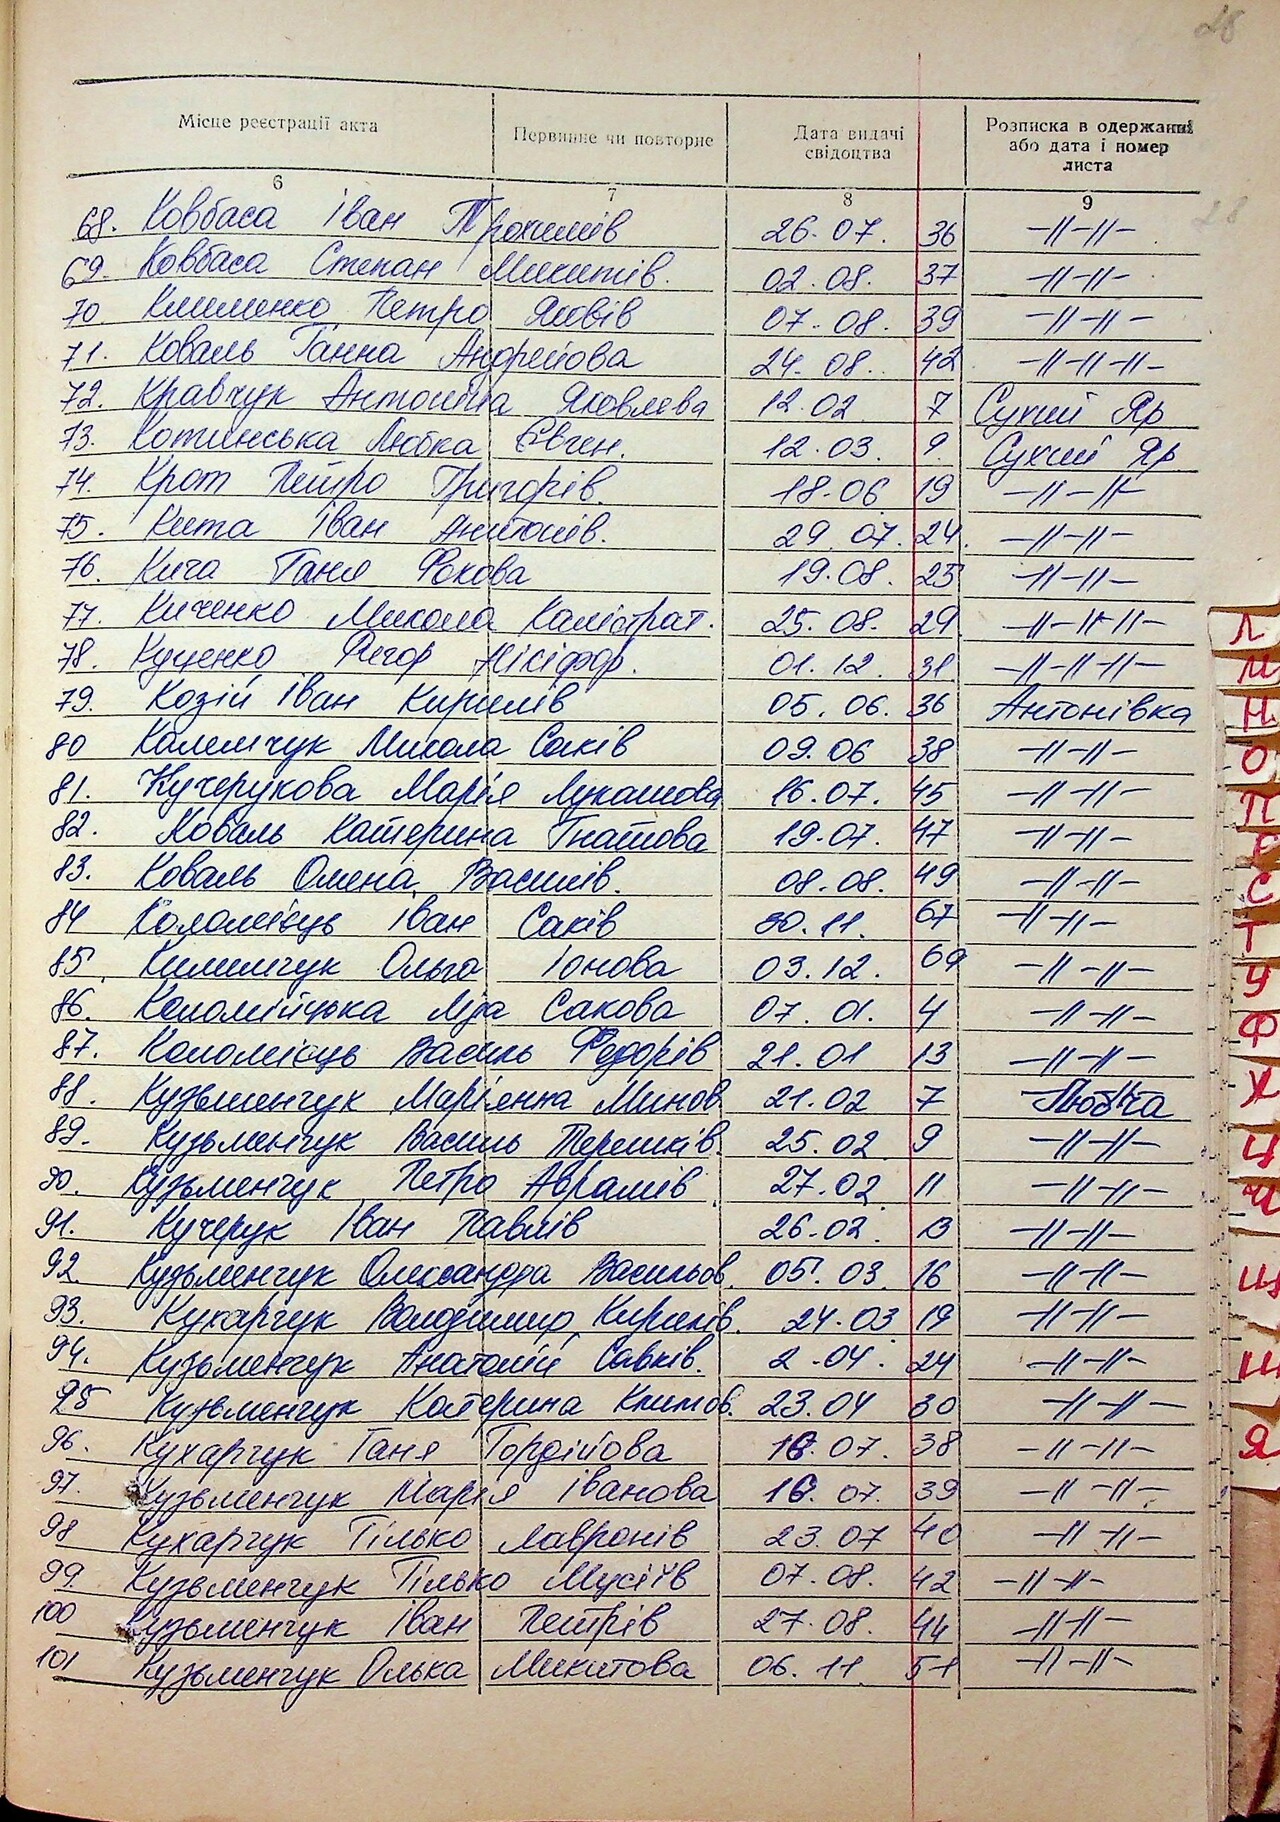 28
Місце реєстрації акта Первинне чи повторне Дата видачі свідоцтва Розписка в одержанні або дата і номер листа
6 7 8 9
28
68. Ковбаса Іван Трохимів 26.07. 36 -//-//-
69. Ковбаса Степан Микитів. 02.08. 37 -//-//-
70 Клименко Петро Яковів 07.08. 39 -//-//-
71. Коваль Ганна Андрейова 24.08. 42 -//-//-//-
72. Кравчук Антоніна Яковлева 12.02 7 Сухий Яр
73. Котинська Любка Євген. 12.03. 9. Сухий Яр
74. Крот Петро Григорів. 18.06 19 -//-//-
75. Кита Іван Антонів. 29.07. 24. -//-//-
76. Кича Ганя Фокова 19.08. 25 -//-//-
77. Киченко Микола Калістрат. 25.08. 29. -//-//-//-
78. Куценко Фегор Нікіфор. 01.12. 31 -//-//-//-
79. Козій Іван Кирилів 05.06. 36 Антонівка
80 Калемчук Микола Саків 09.06 38 -//-//-
81. Кучерукова Марія Лукашова 16.07. 45 -//-//-
82. Коваль Катерина Гнатова 19.07. 47 -//-//-
83. Коваль Олена Василів. 08.08. 49 -//-//-
84 Коломієць Іван Саків 30.11. 67 -//-//-
85. Килимчук Ольга Іонова 03.12. 69 -//-//-
86. Коломійцька Ліза Сакова 07.01. 4 -//-//-
87. Коломієць Василь Федорів 21.01 13 -//-//-
88. Кузьменчук Мар'янна Минов. 21.02 7 Любча
89. Кузьменчук Василь Терешків. 25.02. 9 -//-//-
90. Кузьменчук Петро Аврамів. 27.02 11 -//-//-
91. Кучерук Іван Павлів 26.02. 13 -//-//-
92. Кузьменчук Олександра Васильов. 05.03. 16 -//-//-
93. Кухарчук Володимир Кирилів. 24.03 19 -//-//-
94. Кузьменчук Анатолій Савків. 2.04. 24 -//-//-
95 Кузьменчук Катерина Климов. 23.04 30 -//-//-
96. Кухарчук Ганя Гордійова 16.07. 38 -//-//-
97. Кузьменчук Марія Іванова 16.07. 39 -//-//-
98 Кухарчук Гілько Лавронів 23.07 40 -//-//-
99. Кузьменчук Гілько Мусіїв 07.08. 42 -//-//-
100 Кузьменчук Іван Петрів 27.08. 44 -//-//-
101 Кузьменчук Олька Микитова 06.11. 51 -//-//-
Л
М
Н
О
П
Р
С
Т
У
Ф
Х
Ц
Ч
Щ
Ш
Я